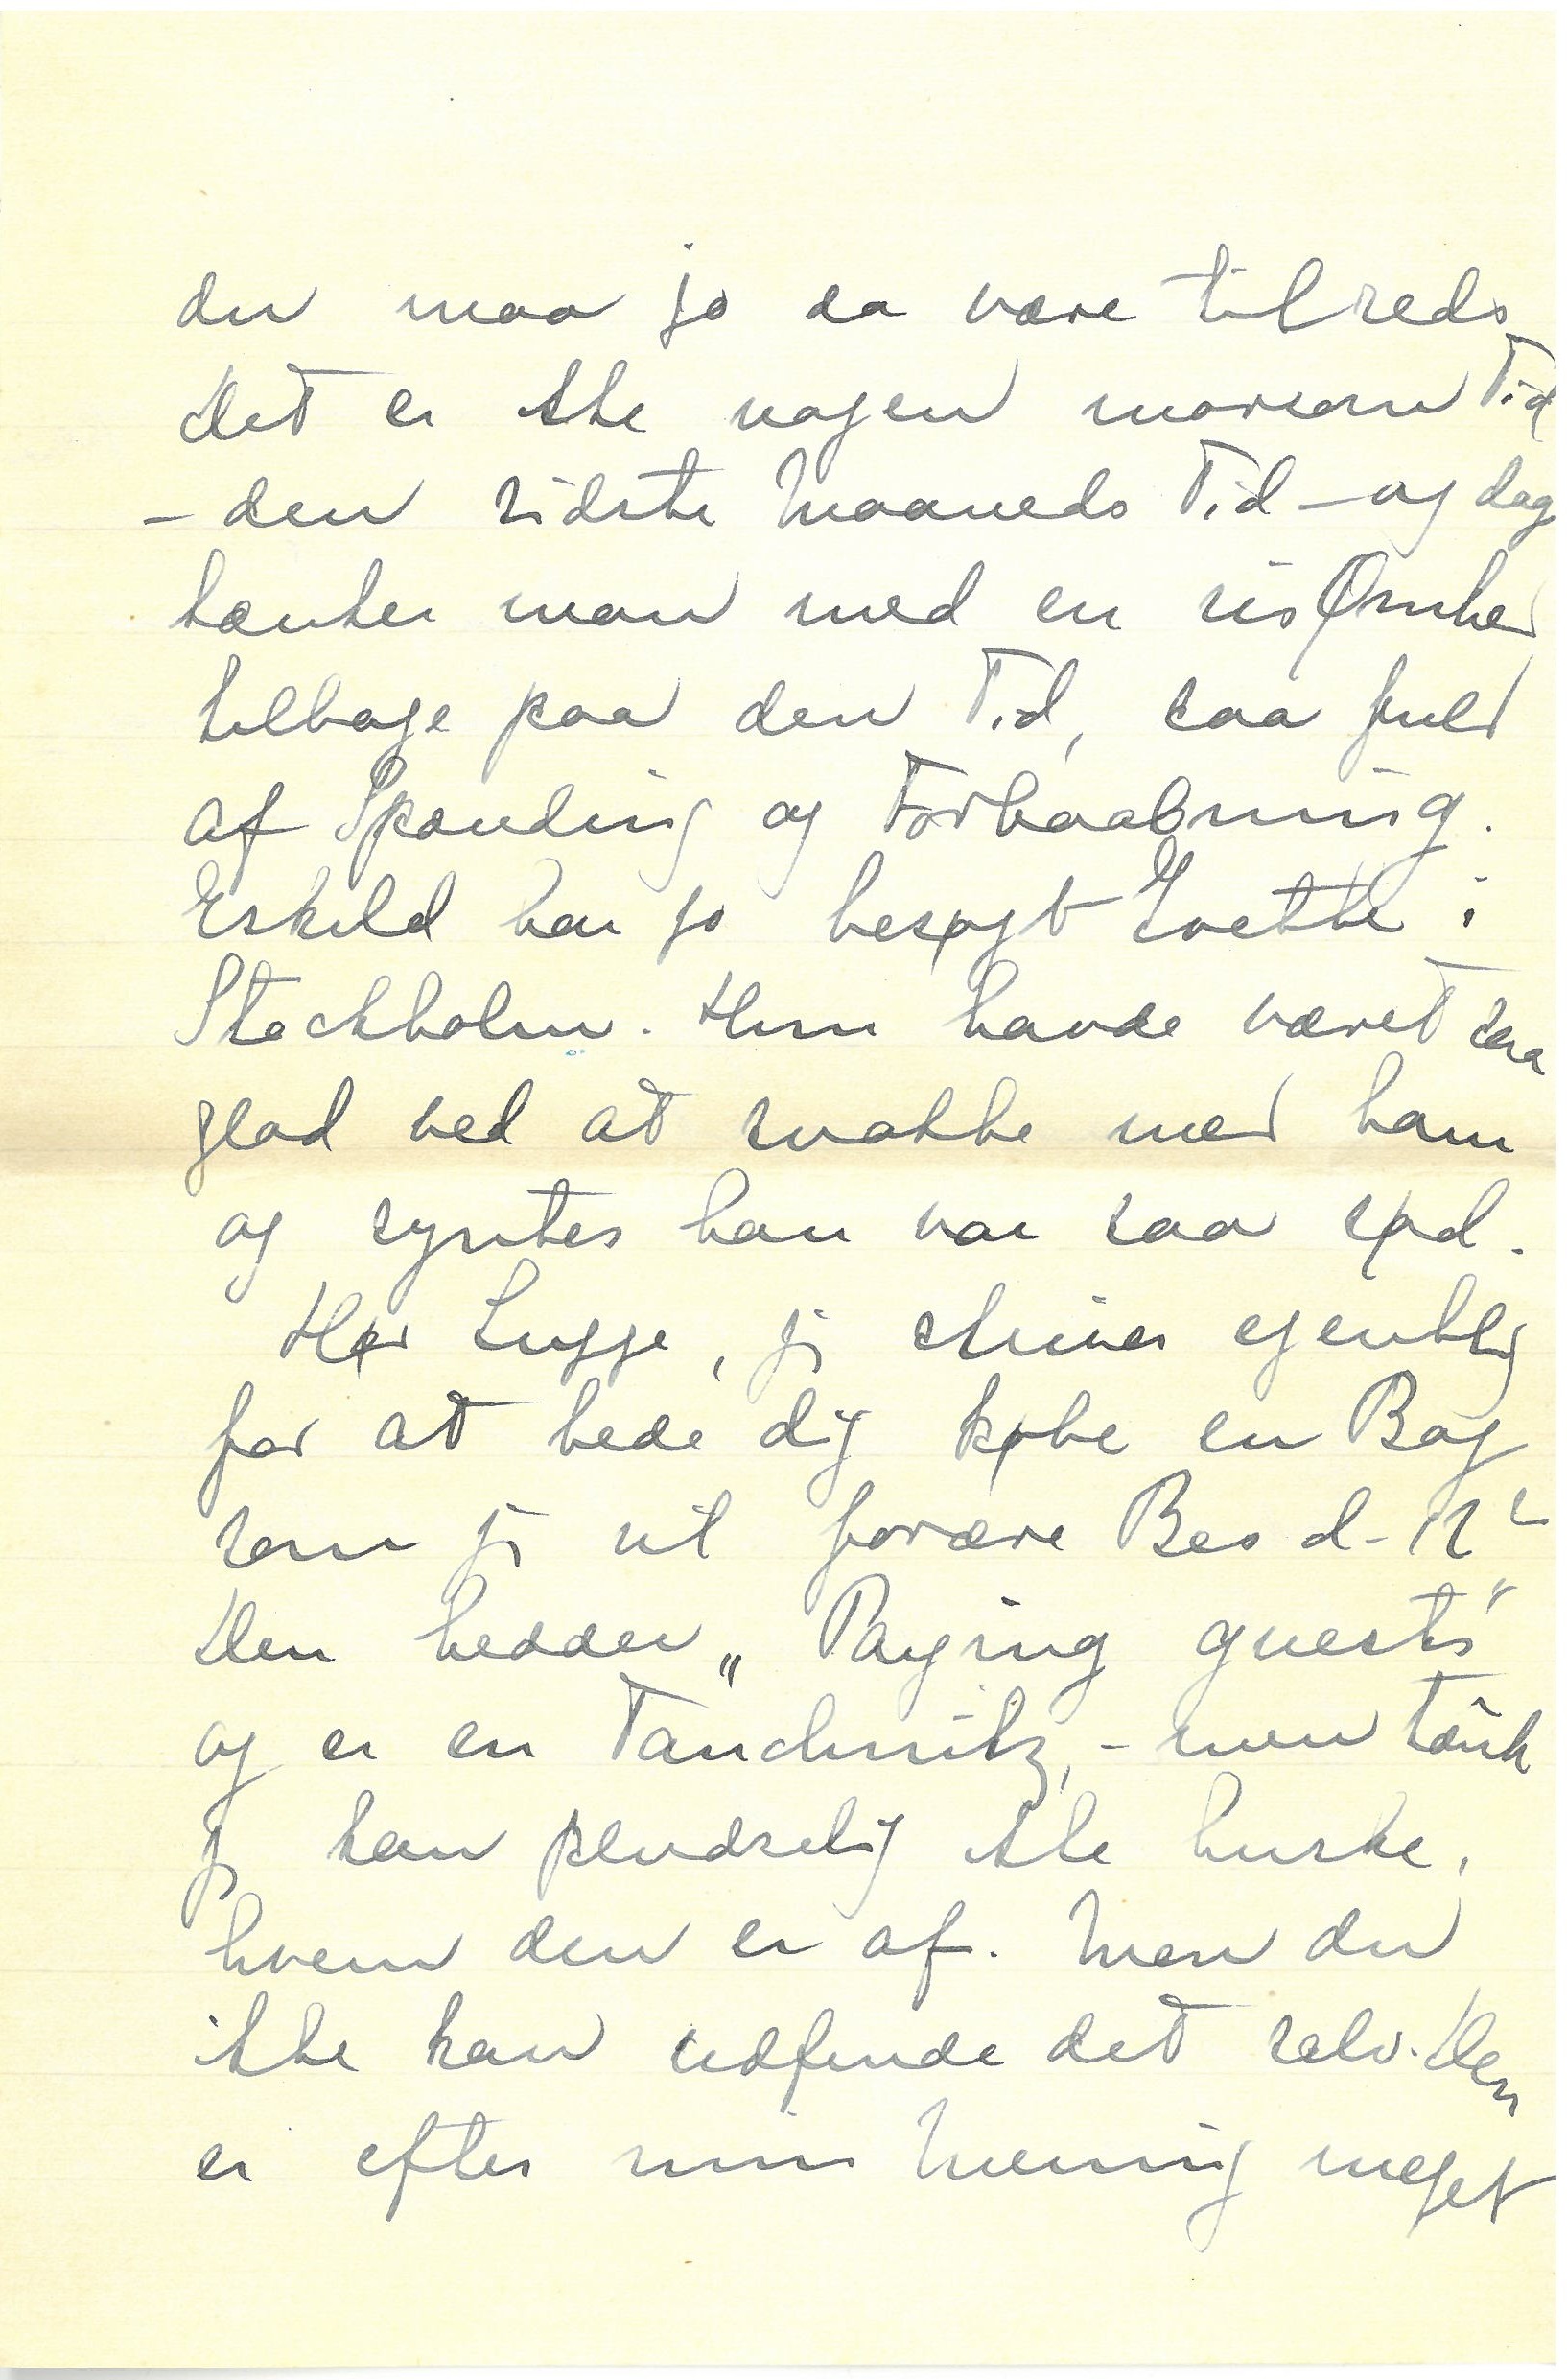 du maa jo da være tilfreds
det er ikke nogen morsom Tid
– den sidste Maaneds Tid – og dog
tænker man med en vis Ømhed
tilbage paa den Tid, saa fuld
af Spænding og Forhaabning.
Eskild har jo besøgt Grethe i
Stockholm. Hun havde været saa
glad ved at snakke med ham
og syntes han var saa sød.
Hør Lugge, jeg skriver egentlig
for at bede dig købe en Bog
som jeg vil forære Bes d. 12
Den hedder „Paying guests"
og er en Tauchnitz, – men tænk
jeg kan pludselig ikke huske,
hvem den er af. Men du
ikke kan udfinde det selv. Den
er efter min Mening meget